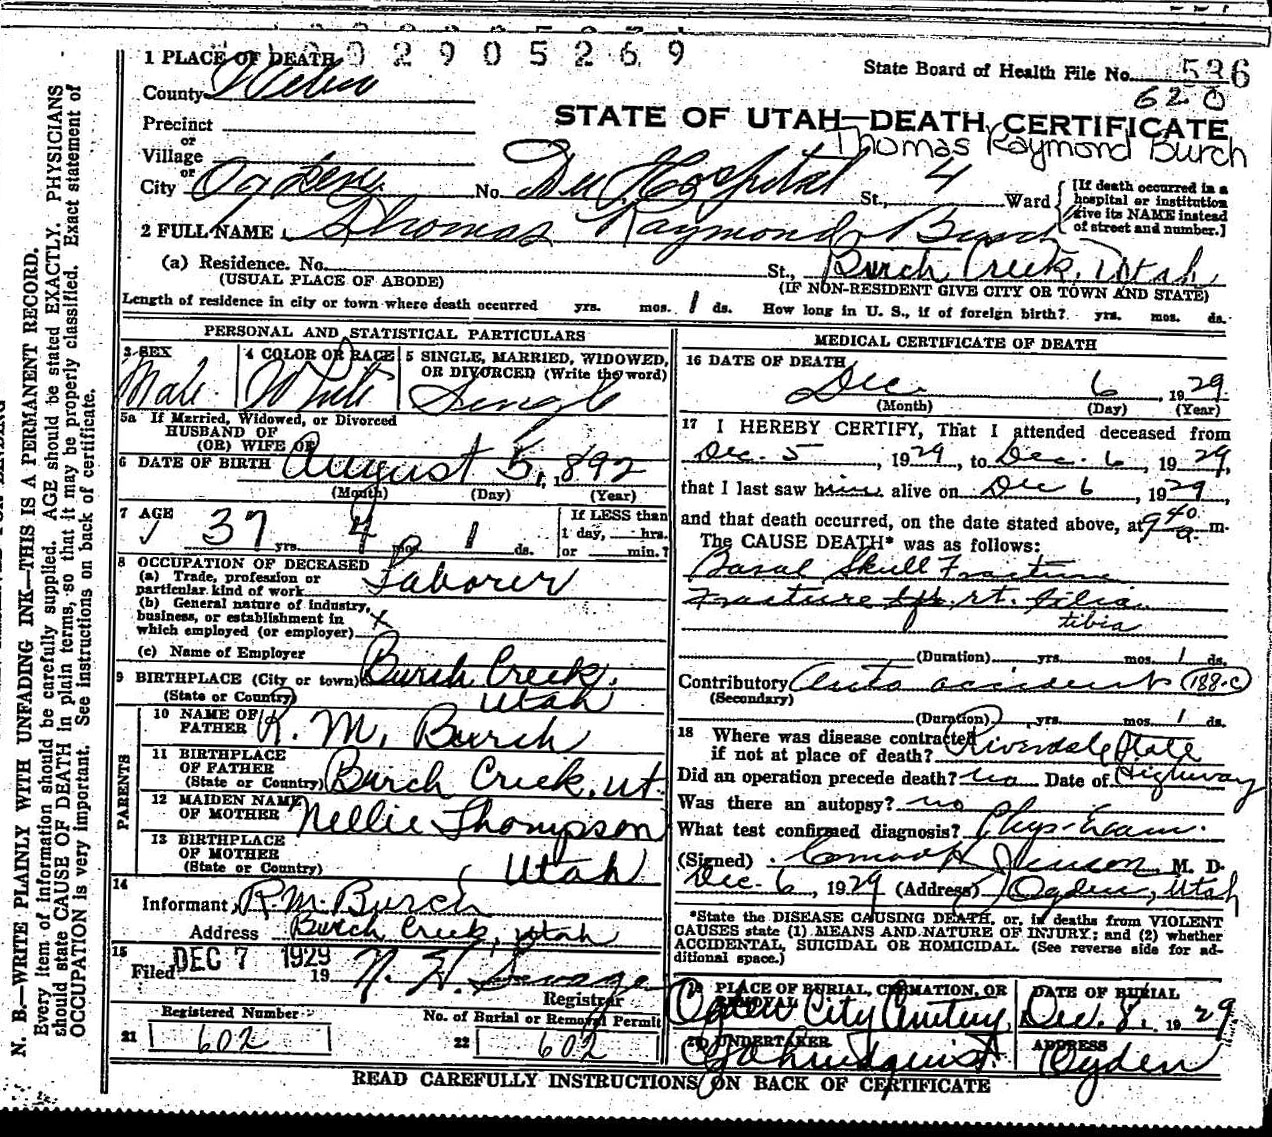 002905269
1 PLACE OF DEATH
State Board of Health File No. 536
620
County Weber
STATE OF UTAH—DEATH CERTIFICATE
Thomas Raymond Burch
Precinct
or
Village
or
City Ogden No. Dee Hospital St., 4 Ward
[If death occurred in a
hospital or institution
give its NAME instead
of street and number.]
2 FULL NAME Thomas Raymond Burch
(a) Residence. No. St., Burch Creek, Utah
(USUAL PLACE OF ABODE) (IF NON-RESIDENT GIVE CITY OR TOWN AND STATE)
Length of residence in city or town where death occurred yrs. mos. 1 ds. How long in U. S., if of foreign birth? yrs. mos. ds.
PERSONAL AND STATISTICAL PARTICULARS
3 SEX 4 COLOR OR RACE 5 SINGLE, MARRIED, WIDOWED,
OR DIVORCED (Write the word)
Male White Single
5a If Married, Widowed, or Divorced
HUSBAND OF
(OR) WIFE OF
6 DATE OF BIRTH August 5, 1892
(Month) (Day) (Year)
7 AGE 37 yrs. 4 mos. 1 ds.
If LESS than
1 day, hrs.
or min.?
8 OCCUPATION OF DECEASED
(a) Trade, profession or
particular kind of work Laborer
(b) General nature of industry,
business, or establishment in
which employed (or employer) x
(c) Name of Employer
9 BIRTHPLACE (City or town) Burch Creek,
(State or Country) Utah
PARENTS
10 NAME OF
FATHER R. M. Burch
11 BIRTHPLACE
OF FATHER
(State or Country) Burch Creek, Ut.
12 MAIDEN NAME
OF MOTHER Nellie Thompson
13 BIRTHPLACE
OF MOTHER
(State or Country) Utah
14
Informant R. M. Burch
Address Burch Creek, Utah
15
Filed DEC 7 1929 19
Registrar
Registered Number
21 602
No. of Burial or Removal Permit
22 602
MEDICAL CERTIFICATE OF DEATH
16 DATE OF DEATH
Dec. 6, 1929
(Month) (Day) (Year)
17 I HEREBY CERTIFY, That I attended deceased from
Dec. 5, 1929, to Dec. 6, 1929,
that I last saw him alive on Dec 6, 1929,
and that death occurred, on the date stated above, at 9 40 a. m.
The CAUSE DEATH* was as follows:
Basal Skull Fracture
Fracture rt.
tibia
(Duration) yrs. mos. 1 ds.
Contributory Auto accident (188-c)
(Secondary)
(Duration) yrs. mos. 1 ds.
18 Where was disease contracted
if not at place of death? Riverdale State
Highway
Did an operation precede death? no Date of
Was there an autopsy? no
What test confirmed diagnosis? Phys. Exam.
(Signed) M. D.
Dec. 6, 1929 (Address) Ogden, Utah
*State the DISEASE CAUSING DEATH, or, in deaths from VIOLENT
CAUSES state (1) MEANS AND NATURE OF INJURY; and (2) whether
ACCIDENTAL, SUICIDAL OR HOMICIDAL. (See reverse side for ad-
ditional space.)
19 PLACE OF BURIAL, CREMATION, OR
REMOVAL DATE OF BURIAL
Ogden City Cemetery Dec. 8, 1929
20 UNDERTAKER ADDRESS
Ogden
READ CAREFULLY INSTRUCTIONS ON BACK OF CERTIFICATE
N. B.—WRITE PLAINLY WITH UNFADING INK—THIS IS A PERMANENT RECORD.
Every item of information should be carefully supplied. AGE should be stated EXACTLY. PHYSICIANS
should state CAUSE OF DEATH in plain terms, so that it may be properly classified. Exact statement of
OCCUPATION is very important. See instructions on back of certificate.